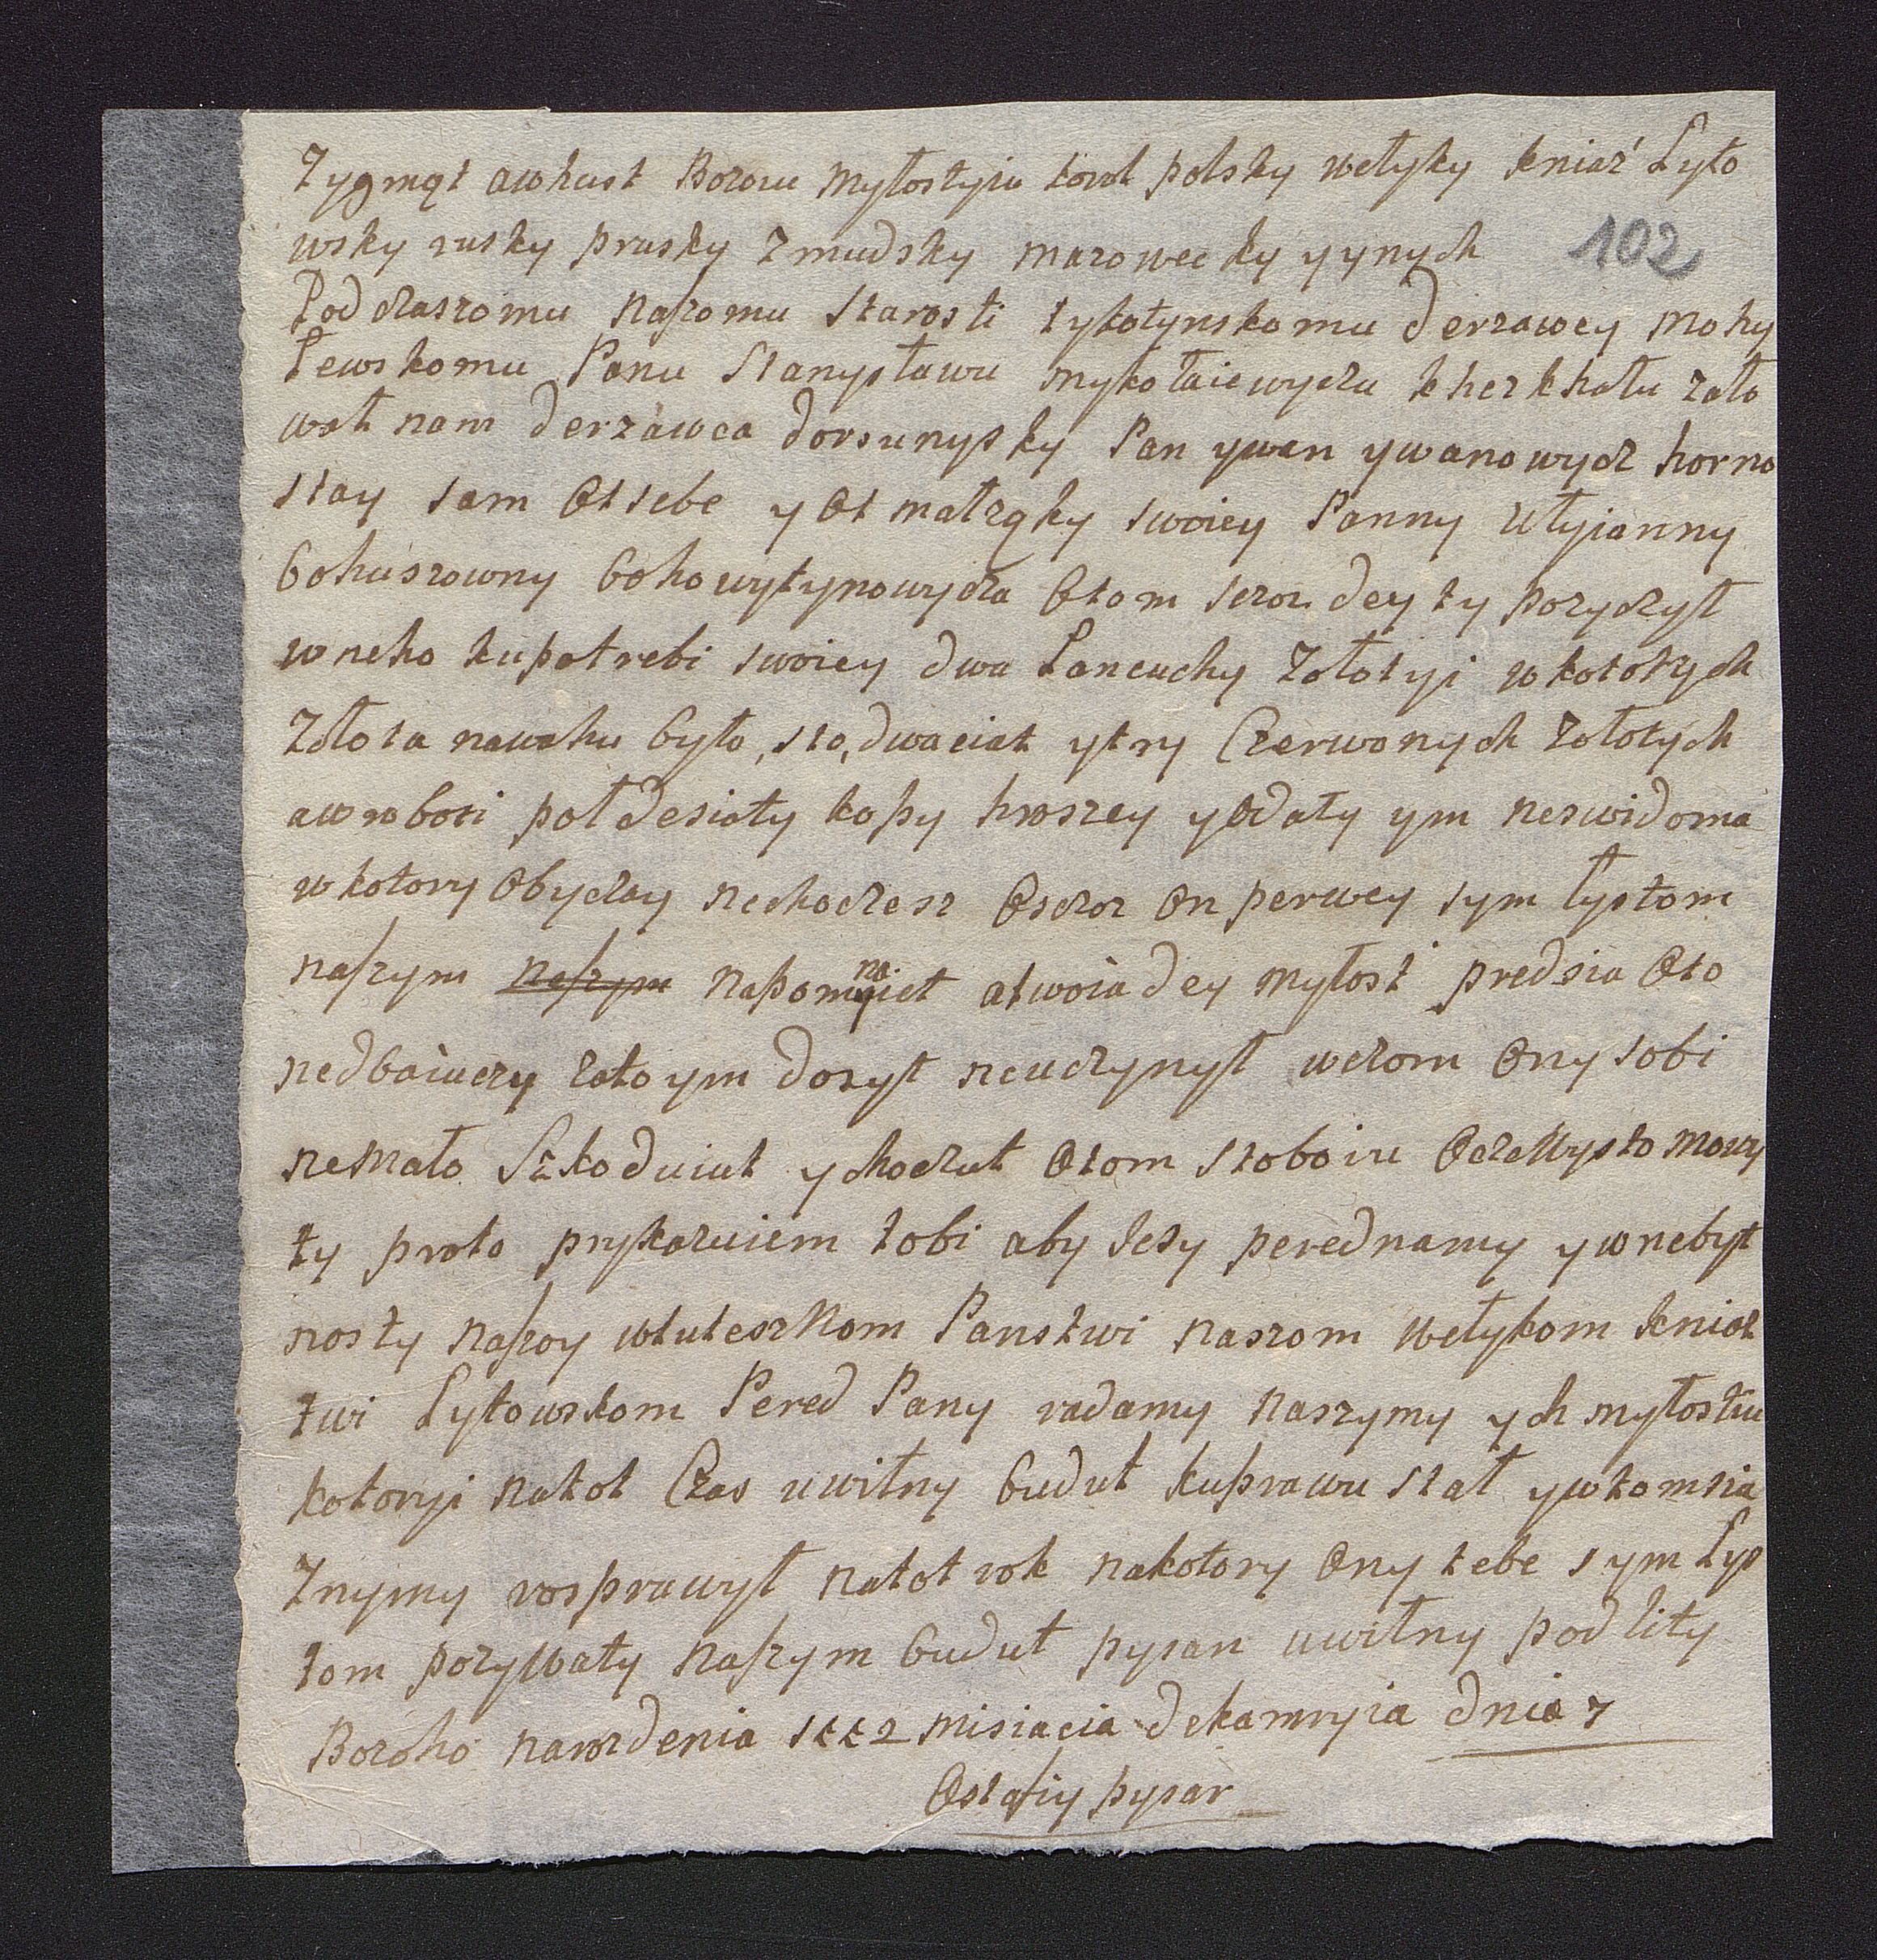 Zygmąt awhust Bozoiu myłostyiu korol polsky wełyky kniaź Łyto
wsky rusky prusky Zmudsky mazowecky y ynych
102
Pod czaszomu naszomu Starosti tykotynskomu derzawcy mohy
lewskomu Panu Stanysławu mykołaiewyczu kherkhołu zało
wał nam derzawca dorsunysky Pan ywan ywanowycz horno
stay sam Ot sebe y Ot małząky swoiey Panny Ułyianny
bohuszowny bohowytynowycza Otom szczoz dey ty pozyczył
w neho ku potrebi swoiey dwa Łancuchy Zołotyi w kotorych
Zołota nawahu było, sto, dwaciat y try Czerwonych Zołotych
a w roboti poł desiaty kopy hroszey y Odaty ym neswidoma
w kotory Obyczay nechoczesz Oszczoz On perwey sym łystom
naszym naszym napomynał a twoia dey myłost predsia Oto
nedbaiuczy zato ym dosyt neuczynył w czom Ony sobi
nemało Szkoduiut y choczut Otom s toboiu Oczewysto mowy
ty proto prykazuiem tobi aby Jesy pered namy y w nebyt
nosty naszoy w tuteszNom Panstwi naszom wełykom kniaz
twi Łytowskom Pered Pany radamy naszymy ych myłostiu
kotoryi natot Czas uwiłny budut ku prawu stał y w tom sia
Znymy rosprawył na tot rok na kotory Ony tebe sym Łys
tom pozywaty naszym budut pysan uwiłny pod lity
Bozoho narozdenia 1552 misiacia dekamryia dnia 7
Ostafiy pysar